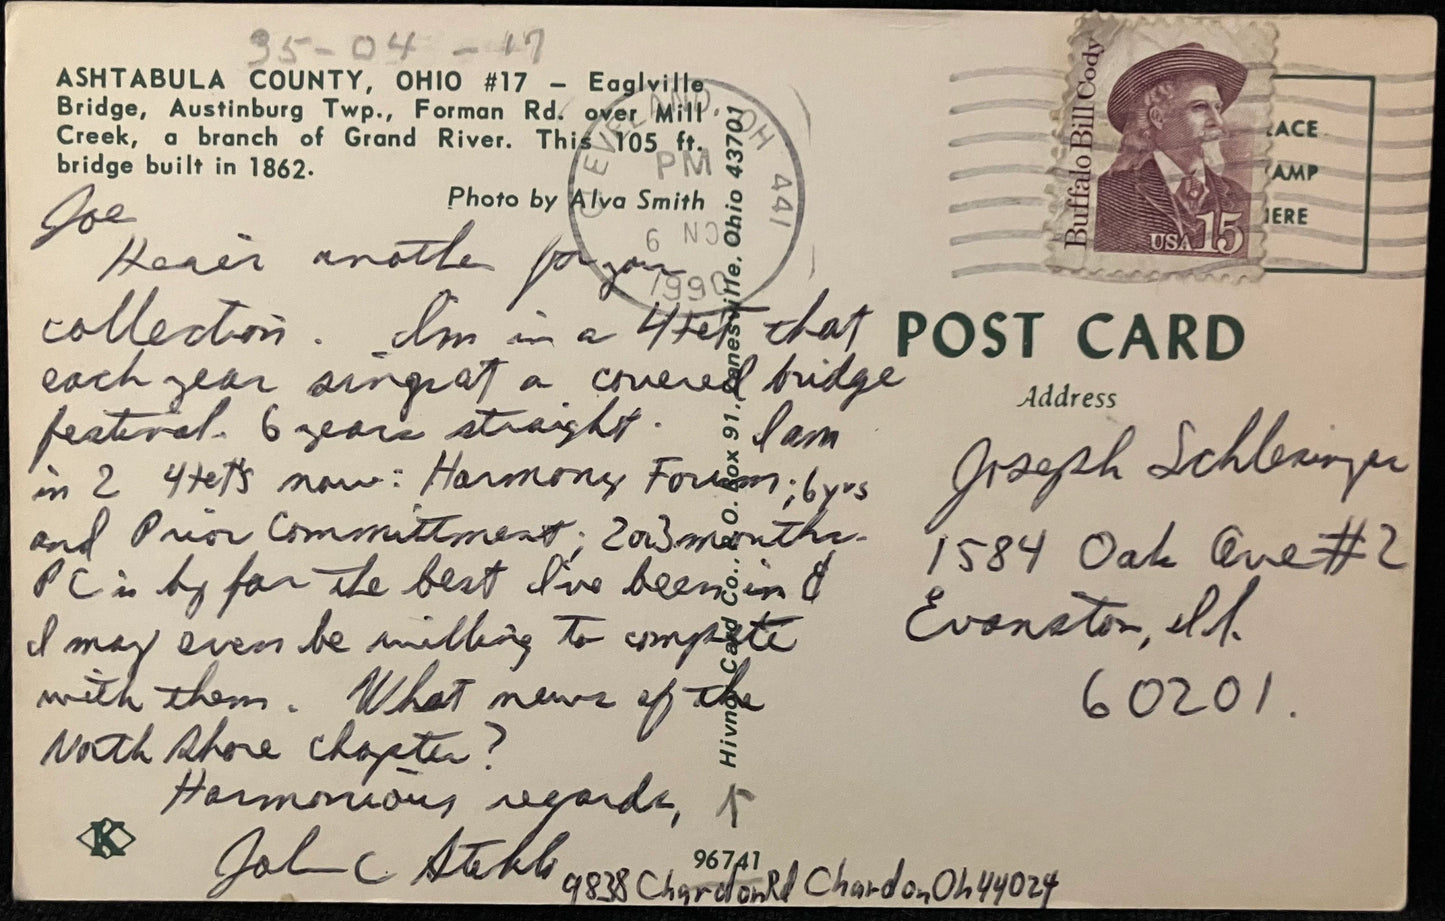 35-04-17
ASHTABULA COUNTY, OHIO #17 – Eaglville
Bridge, Austinburg Twp., Forman Rd. over Mill
Creek, a branch of Grand River. This 105 ft.
bridge built in 1862.
Photo by Alva Smith
Joe
Here's another for your
collection. I'm in a 4tet that
each year sings at a covered bridge
festival. 6 years straight. I am
in 2 4tet's now: Harmony Forum; 6 yrs
and Prior Committment; 2or3 months.
PC is by far the best I've been in &
I may even be willing to compete
with them. What news of the
North Shore chapter?
Harmonious regards,
John C
9838 Chardon Rd Chardon Oh 44024
K
96741
Hivnor Card Co., P.O. Box 91, Zanesville, Ohio 43701
CLEVELAND, OH 441
PM
6
1990
Buffalo Bill Cody
USA 15
LACE
AMP
HERE
POST CARD
Address
Joseph Schlesinger
1584 Oak Ave #2
Evanston, Il.
60201.